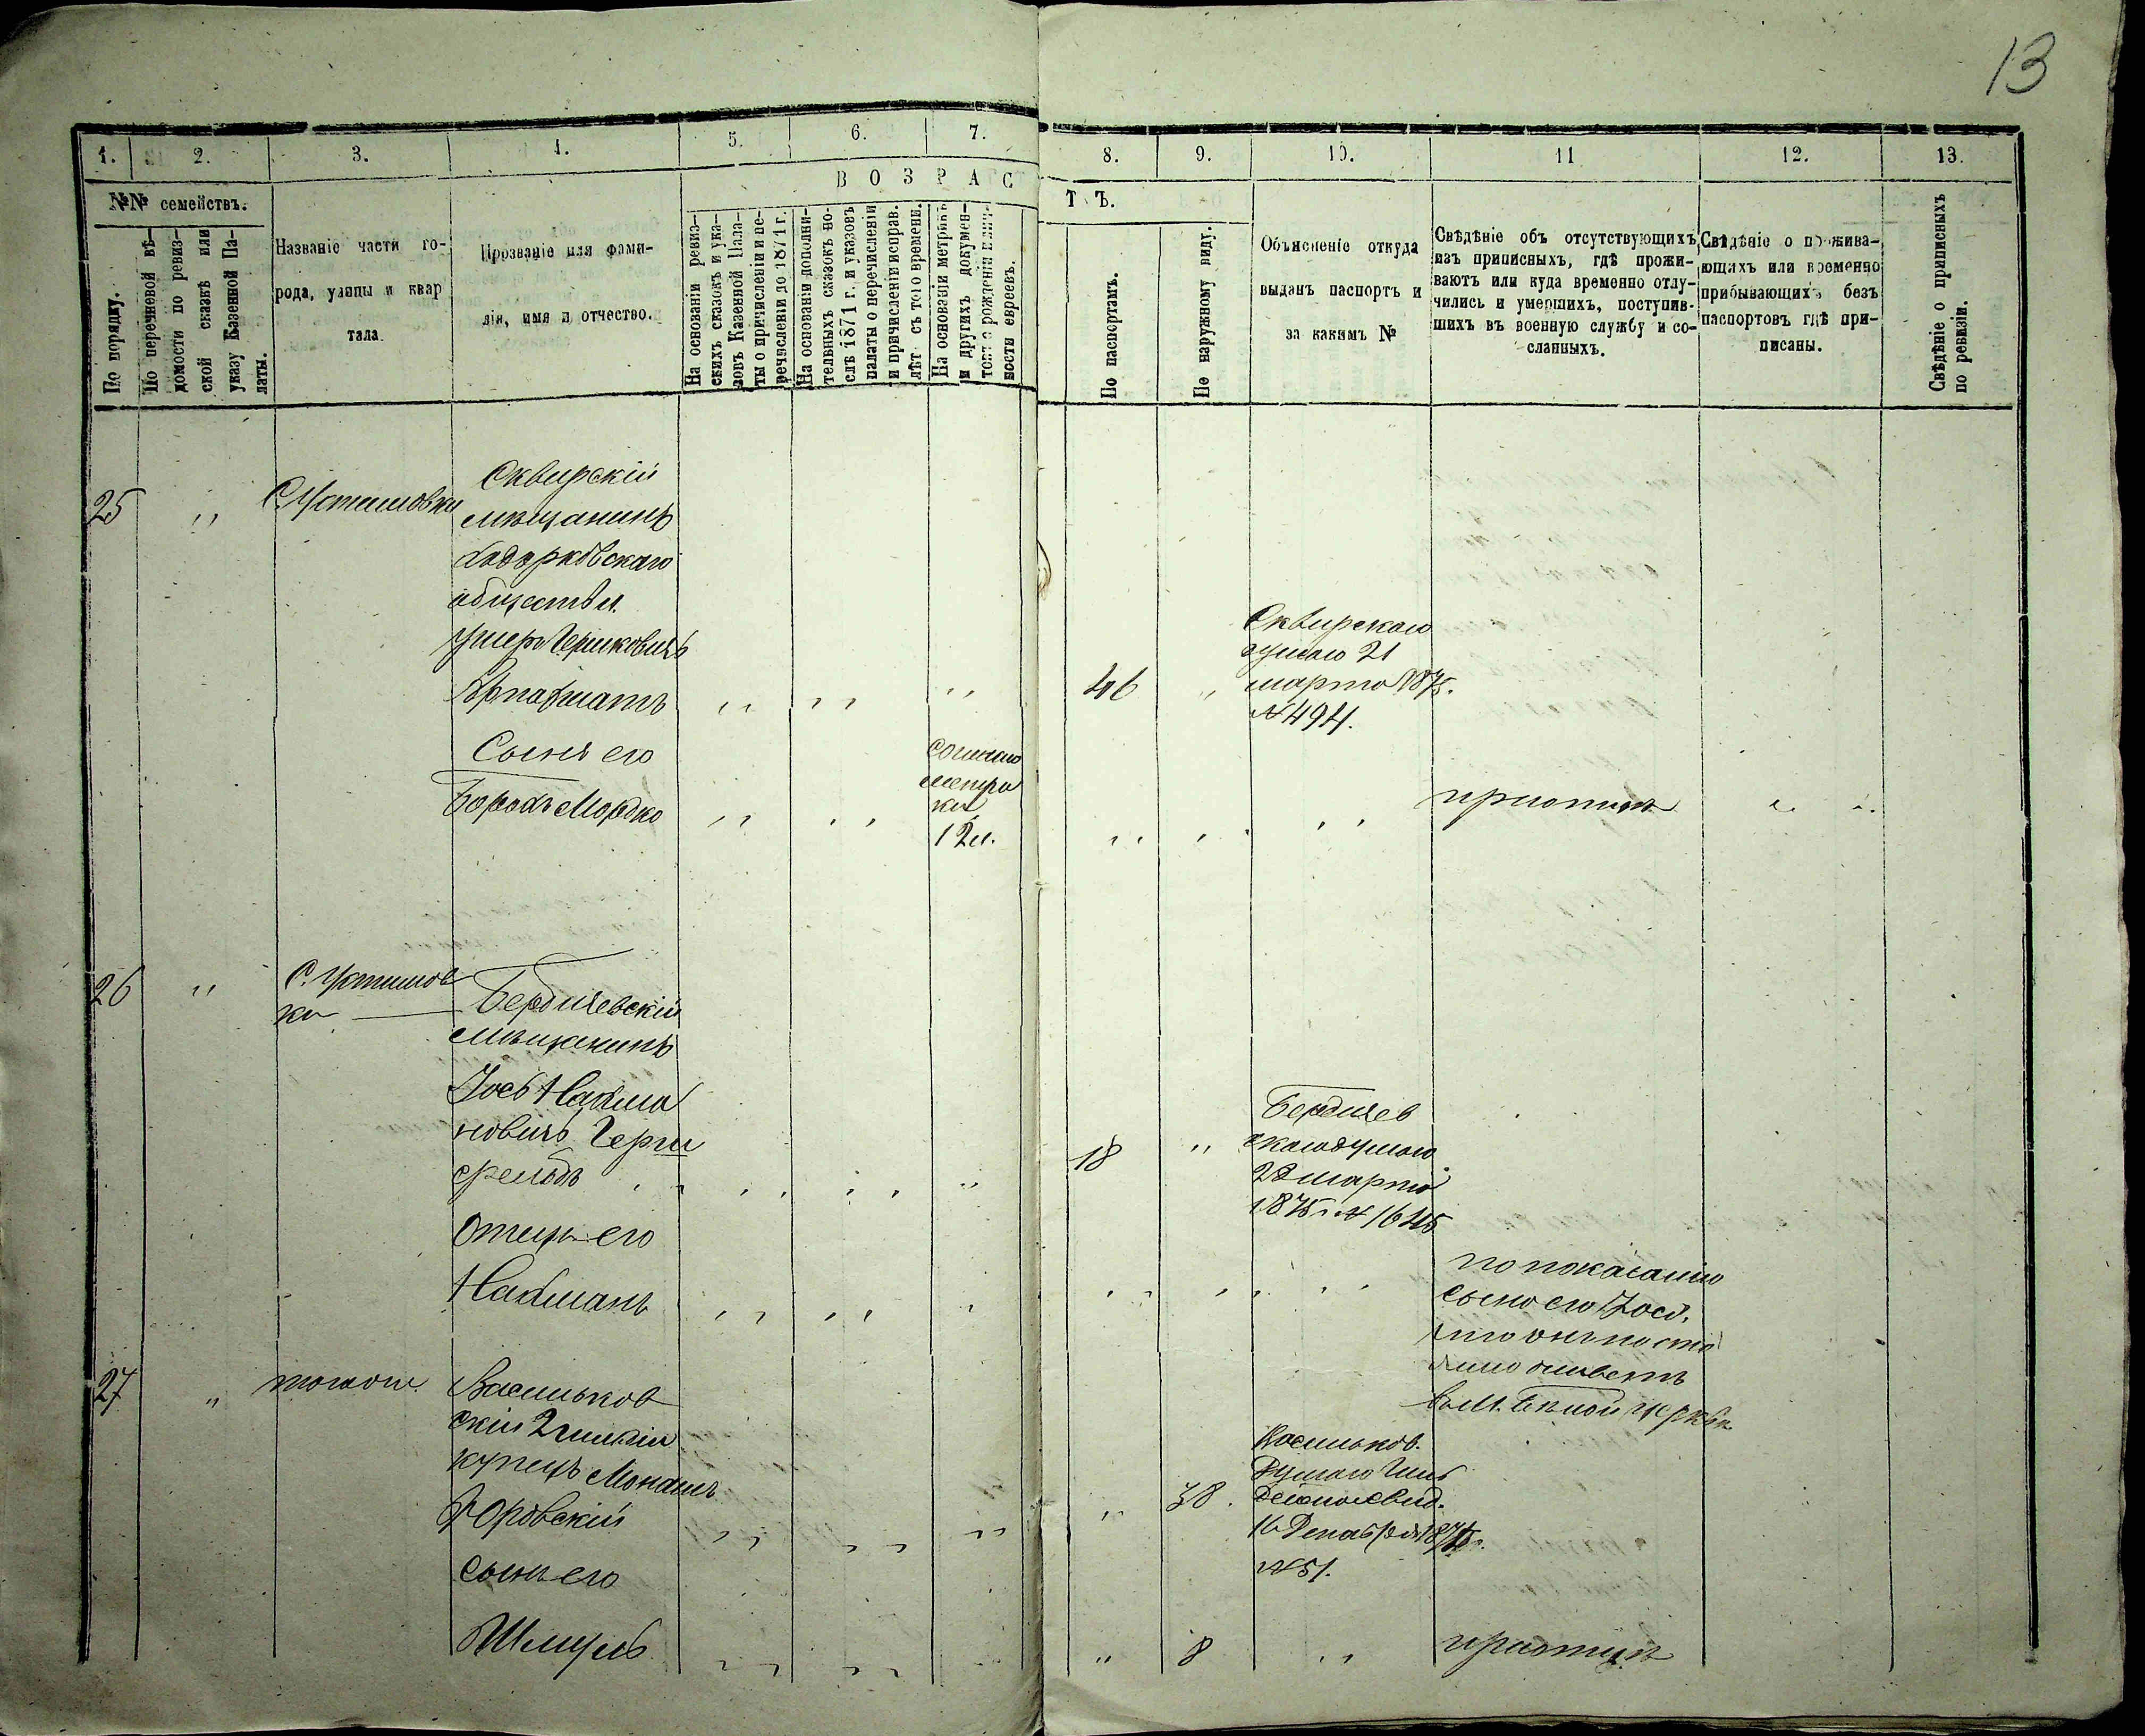 13
1. 2. 3. 4. 5. 6. 7. 8. 9. 10. 11 12. 13.
ВОЗРАСТЪ.
№№ семействъ.
По порядку.
По перечневой вѣ-
домости по ревиз-
ской сказкѣ или
указу Казенной Па-
латы.
Названіе части го-
рода, улицы и квар
тала.
Прозваніе или фами-
лія, имя и отчество.
На основаніи ревиз-
скихъ сказокъ и ука-
зовъ Казенной Пала-
ты о причисленіи и пе-
речисленіи до 1871 г.
На основаніи дополни-
тельныхъ сказокъ по-
слѣ 1871 г. и указовъ
палаты о перечисленіи
и причисленіи исправ.
лѣт съ того времени.
На основаніи метрикъ
и других докумен-
товъ о рожденіи и лич-
ности евреевъ.
По паспортамъ.
По наружному виду.
Объясненіе откуда
выданъ паспортъ и
за какимъ №
Свѣдѣніе объ отсутствующихъ
изъ приписныхъ, гдѣ прожи-
ваютъ или куда временно отлу-
чились и умершихъ, поступив-
шихъ въ военную службу и со-
сланныхъ.
Свѣдѣніе о прожива-
ющихъ или временно
прибывающихъ безъ
паспортовъ гдѣ при-
писаны.
Свѣдѣніе о приписныхъ
по ревизіи.
25 " С. Устимовки
Сквирскій
мѣщанинъ
Ходорковскаго
общества
Ушеръ Гершковичъ
" " " 46 "
Сквирскаго
думаю 21
марта 1875.
№ 494.
Сынъ его
Борохъ Мордко
согласно
метри
ки
12 л.
26 " С. Устимов
ки
Бердичевскій
мѣщанинъ
Іось Нахма
новичъ Герш
фельдъ
18 "
Бердичев
скаго думаю
23 марта
1875 г. № 1645
Отецъ его
Нахманъ
по показанію
сына его Іося,
что онъ посто
янно живетъ
въ м. Бѣлой Церкви
27 " тоже
Васильков
скій 2 гильдіи
купецъ Монашъ
Юровскій
" 38
Васильков.
Думаю Гиль
дейское свид.
16 Декабря 1875 г.
№ 51.
сынъ его
Шмуль
" 8 "